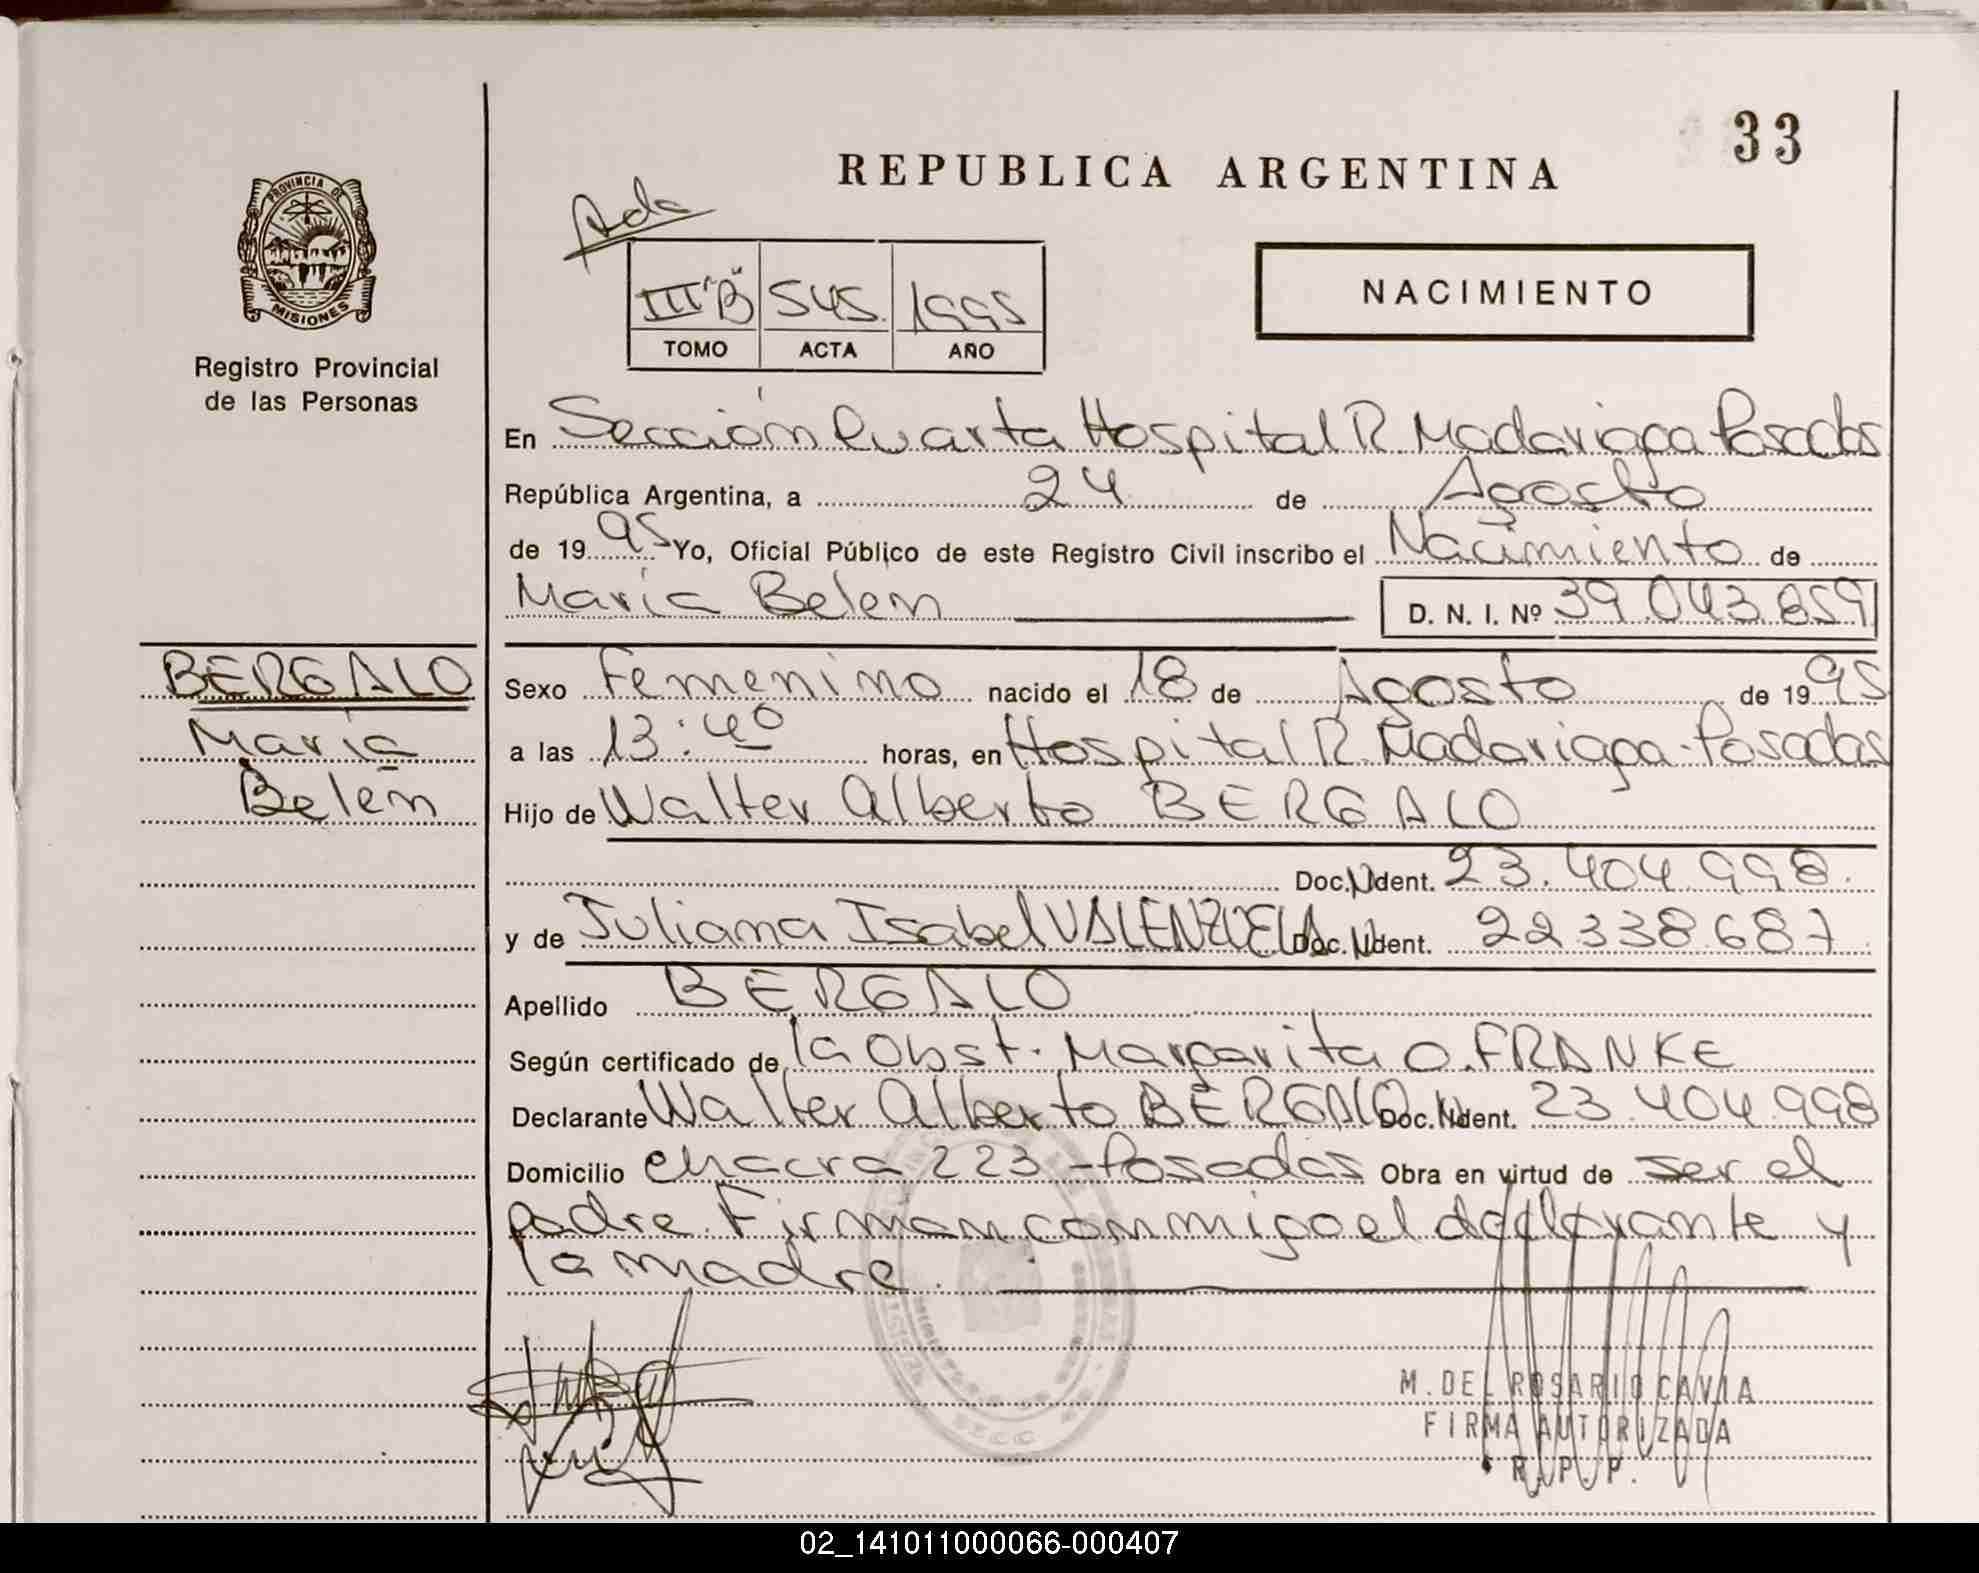 33
REPUBLICA ARGENTINA
PROVINCIA DE
MISIONES
Registro Provincial
de las Personas
III "B" 545 1995
TOMO ACTA AÑO
NACIMIENTO
En Sección Cuarta Hospital R. Madariaga Posadas
República Argentina, a 24 de Agosto
de 1995 Yo, Oficial Público de este Registro Civil inscribo el Nacimiento de
María Belen D. N. I. Nº 39.043.859
BERGALO
María
Belén
Sexo Femenino nacido el 18 de Agosto de 1995
a las 13:40 horas, en Hospital R. Madariaga - Posadas
Hijo de Walter Alberto BERGALO
Doc. N. Ident. 23.404.998.
y de Juliana Isabel VALENZUELA Doc. N. Ident. 22338687
Apellido BERGALO
Según certificado de la Obst. Margarita O. FRANKE
Declarante Walter Alberto BERGALO Doc. N. Ident. 23.404.998
Domicilio chacra 223 - Posadas Obra en virtud de ser el
padre. Firman conmigo el declarante y
la madre.
M. DEL ROSARIO CAVIA
FIRMA AUTORIZADA
R. P. P.
02_141011000066-000407